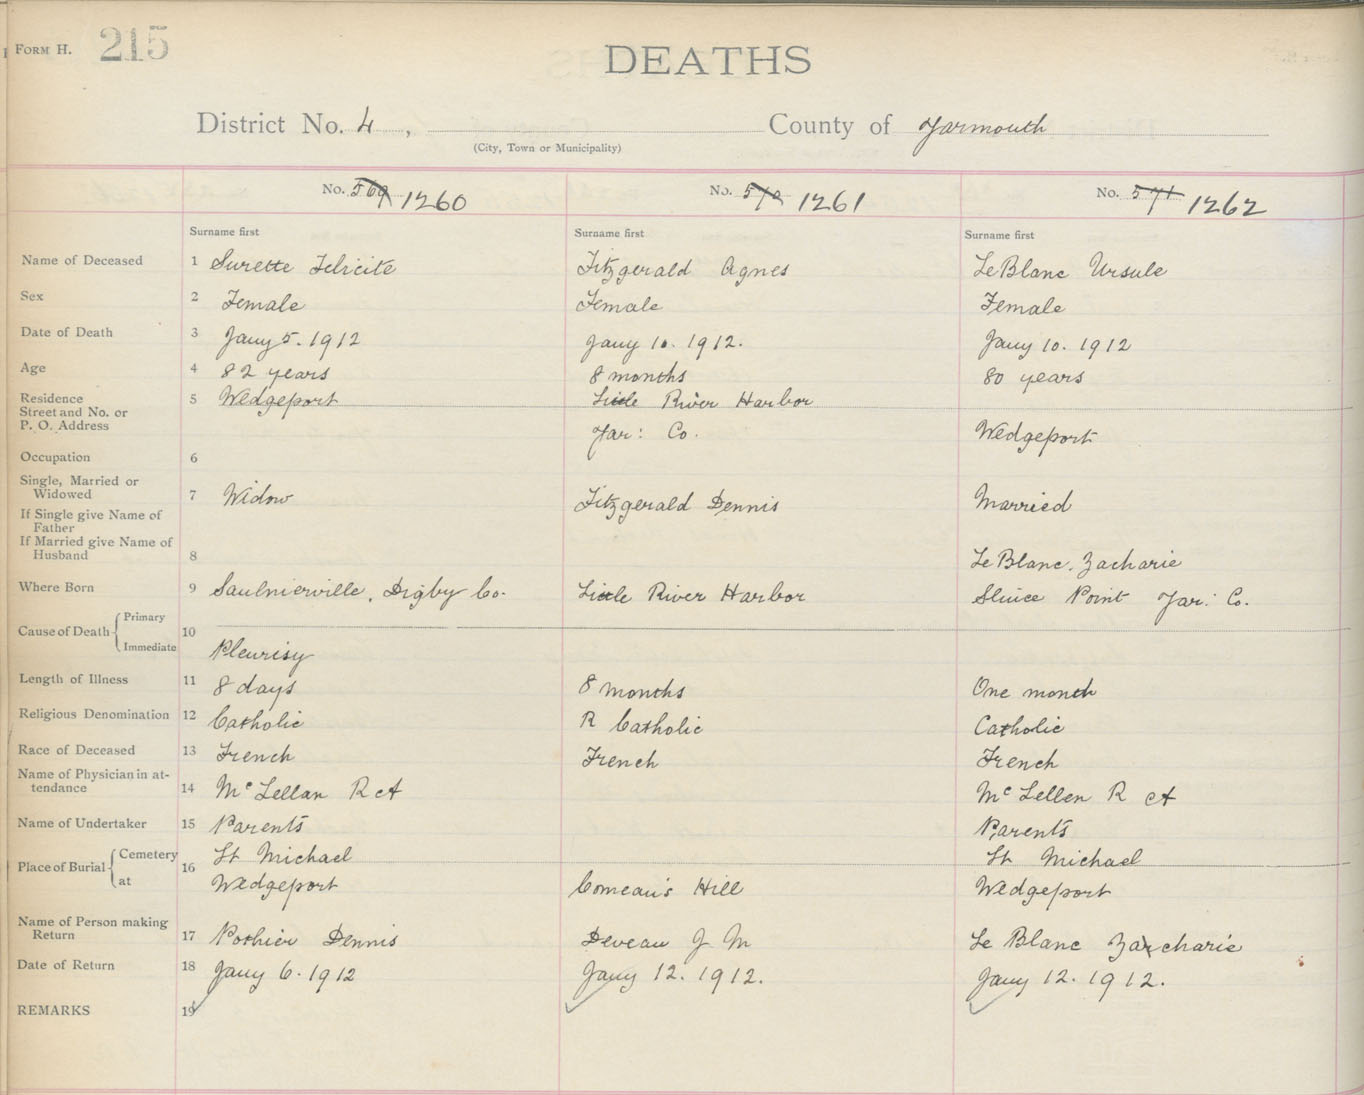 FORM H. 215
DEATHS
District No. 4 , County of Yarmouth
(City, Town or Municipality)
No. 569 1260 No. 570 1261 No. 571 1262
Surname first Surname first Surname first
Name of Deceased 1 Surette Felicite Fitzgerald Agnes LeBlanc Ursule
Sex 2 Female Female Female
Date of Death 3 Jany 5. 1912 Jany 10. 1912. Jany 10. 1912
Age 4 82 years 8 months 80 years
Residence 5 Wedgeport Little River Harbor
Street and No. or
P. O. Address Yar: Co. Wedgeport
Occupation 6
Single, Married or
Widowed 7 Widow Fitzgerald Dennis Married
If Single give Name of
Father
If Married give Name of
Husband 8 LeBlanc. Zacharie
Where Born 9 Saulnierville, Digby Co. Little River Harbor Sluice Point Yar: Co.
Cause of Death Primary 10
Immediate Pleurisy
Length of Illness 11 8 days 8 months One month
Religious Denomination 12 Catholic R Catholic Catholic
Race of Deceased 13 French French French
Name of Physician in at-
tendance 14 McLellan R A McLellen R A
Name of Undertaker 15 Parents Parents
Place of Burial Cemetery 16 St Michael St Michael
at Wedgeport Comeau's Hill Wedgeport
Name of Person making
Return 17 Pothier Dennis Deveau J M Le Blanc Zacharie
Date of Return 18 Jany 6. 1912 Jany 12. 1912. Jany 12. 1912.
REMARKS 19